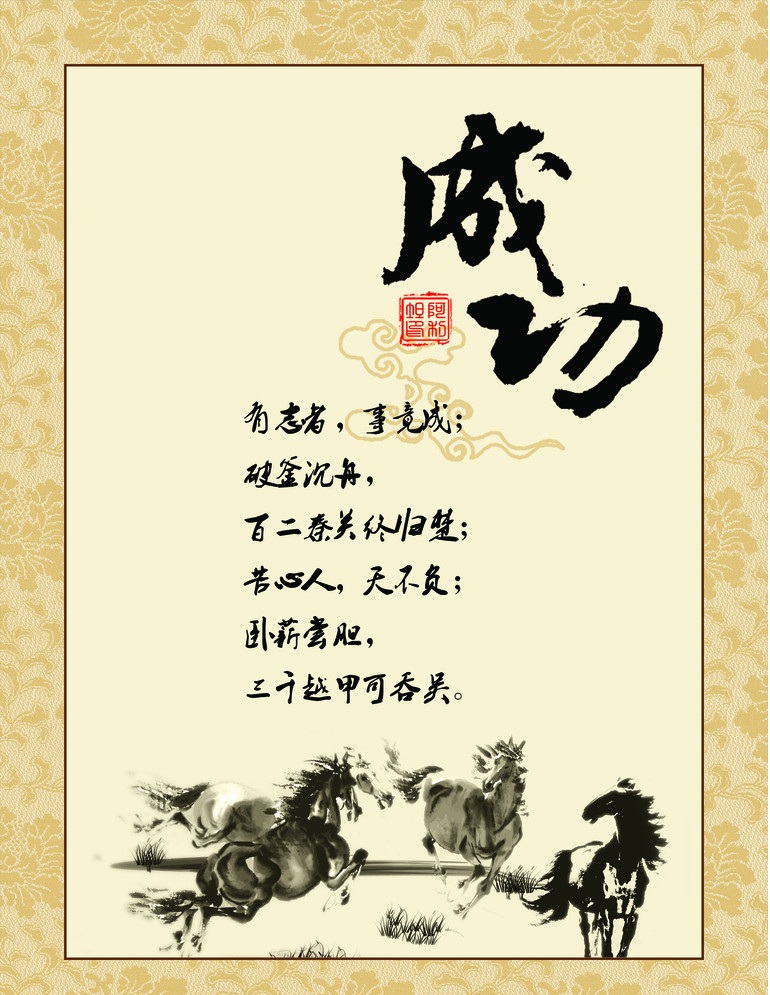 成功
有志者，事竟成；
破釜沉舟，
百二秦关终归楚；
苦心人，天不负；
卧薪尝胆，
三千越甲可吞吴。